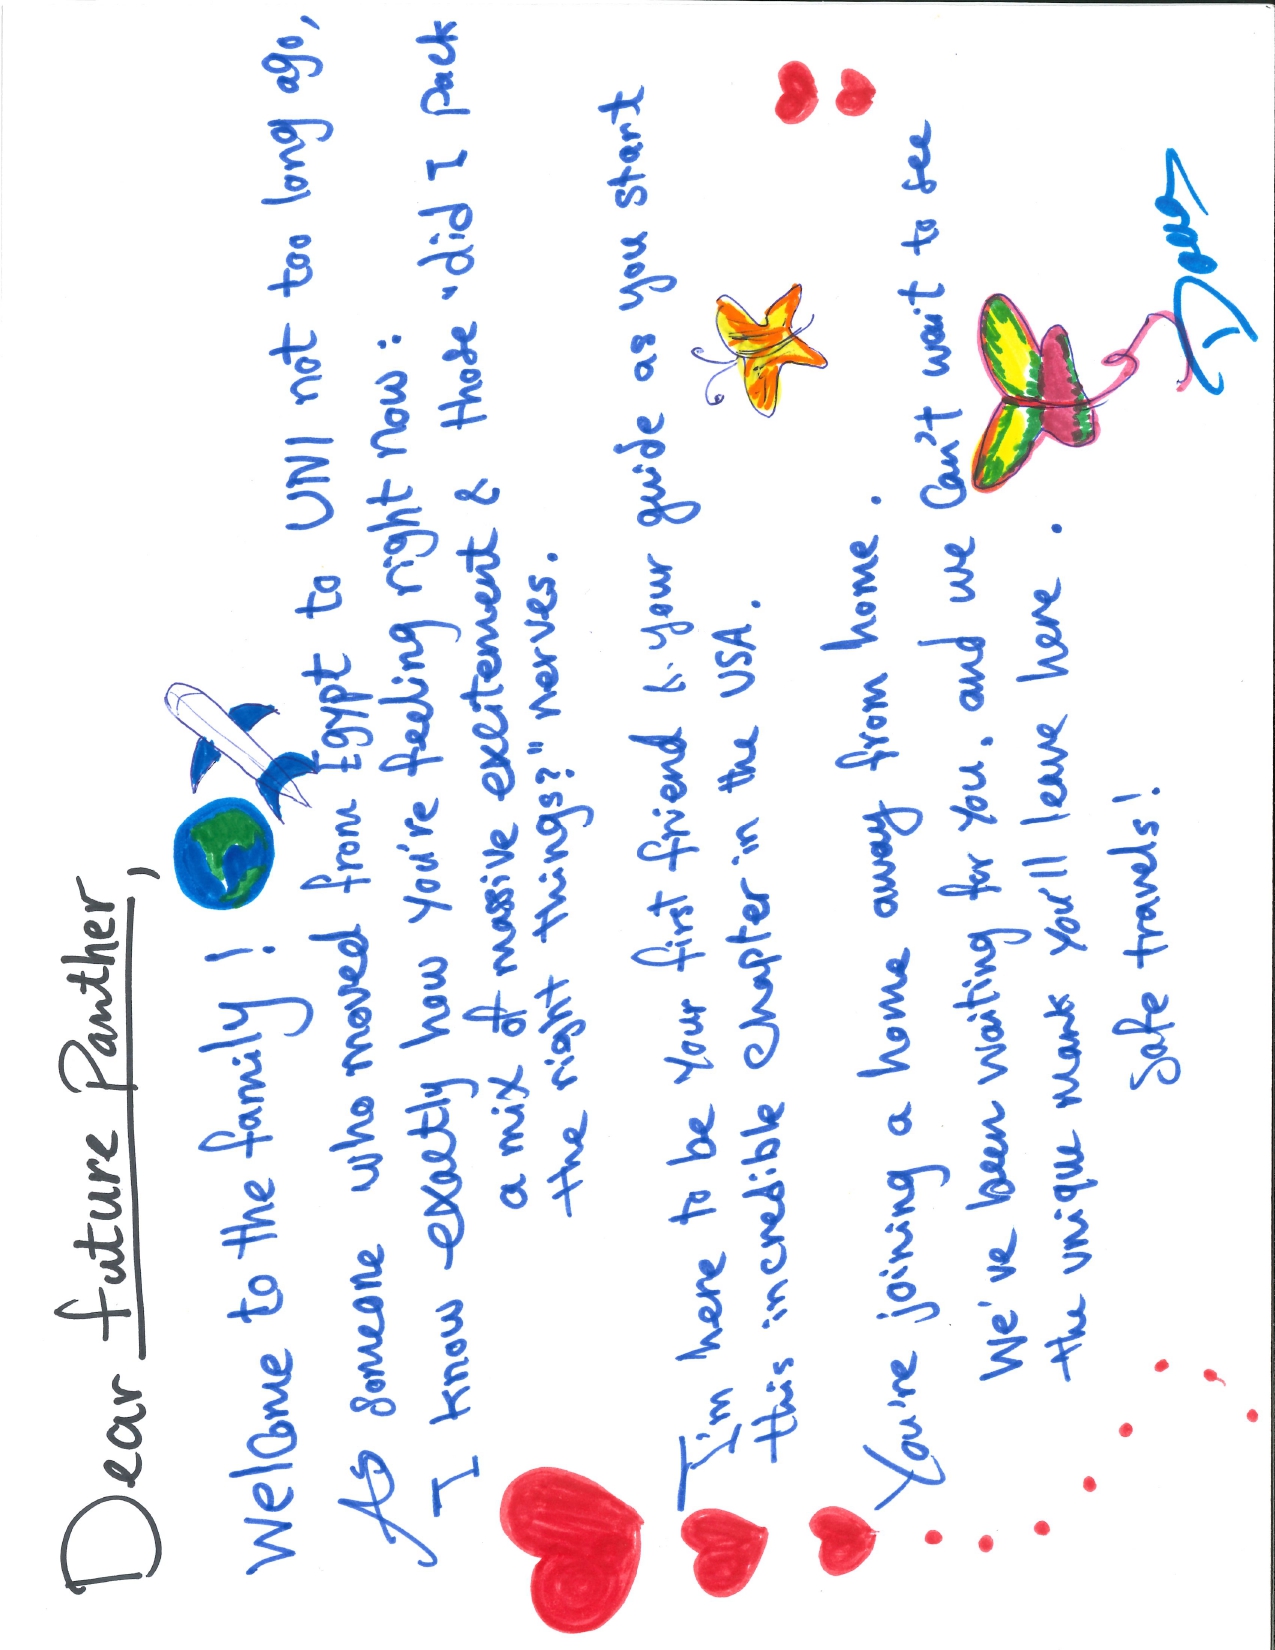 Dear future Panther,
Welcome to the family!
As someone who moved from Egypt to UNI not too long ago,
I know exactly how you're feeling right now:
a mix of massive excitement & those "did I pack
the right things?" nerves.
I'm here to be your first friend & your guide as you start
this incredible chapter in the USA.
You're joining a home away from home.
We've been waiting for you, and we can't wait to see
the unique mark you'll leave here.
Safe travels!